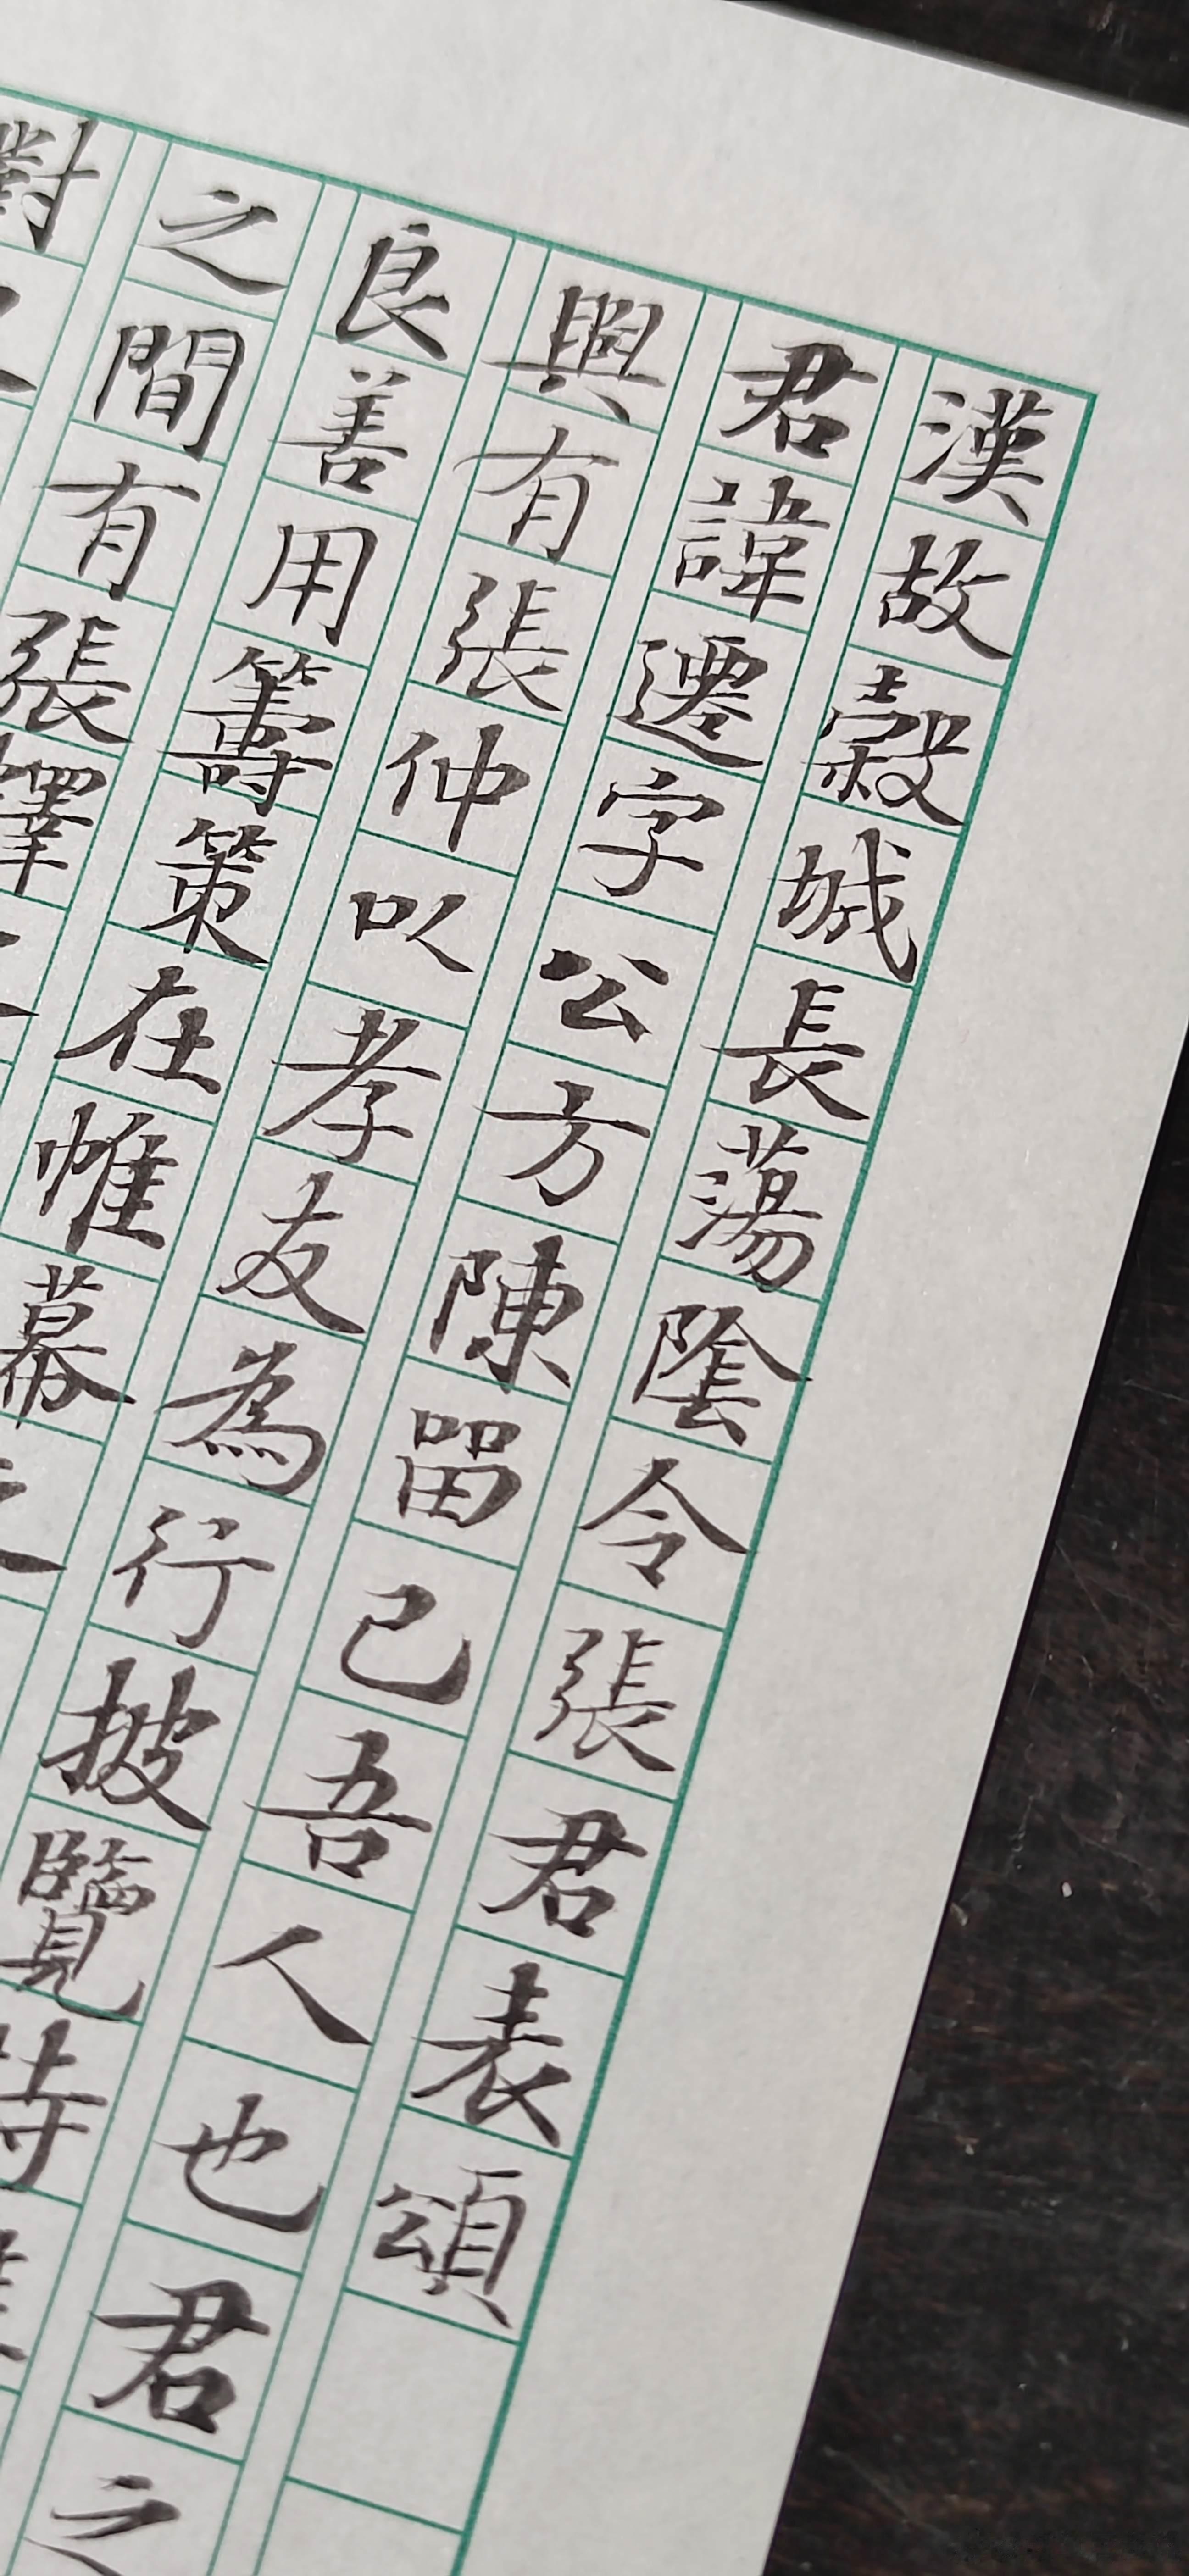 漢故穀城長蕩陰令張君表頌
君諱遷字公方陳留己吾人也君之
興有張仲以孝友為行披覽
良善用籌策在帷幕之
之間有張釋
對